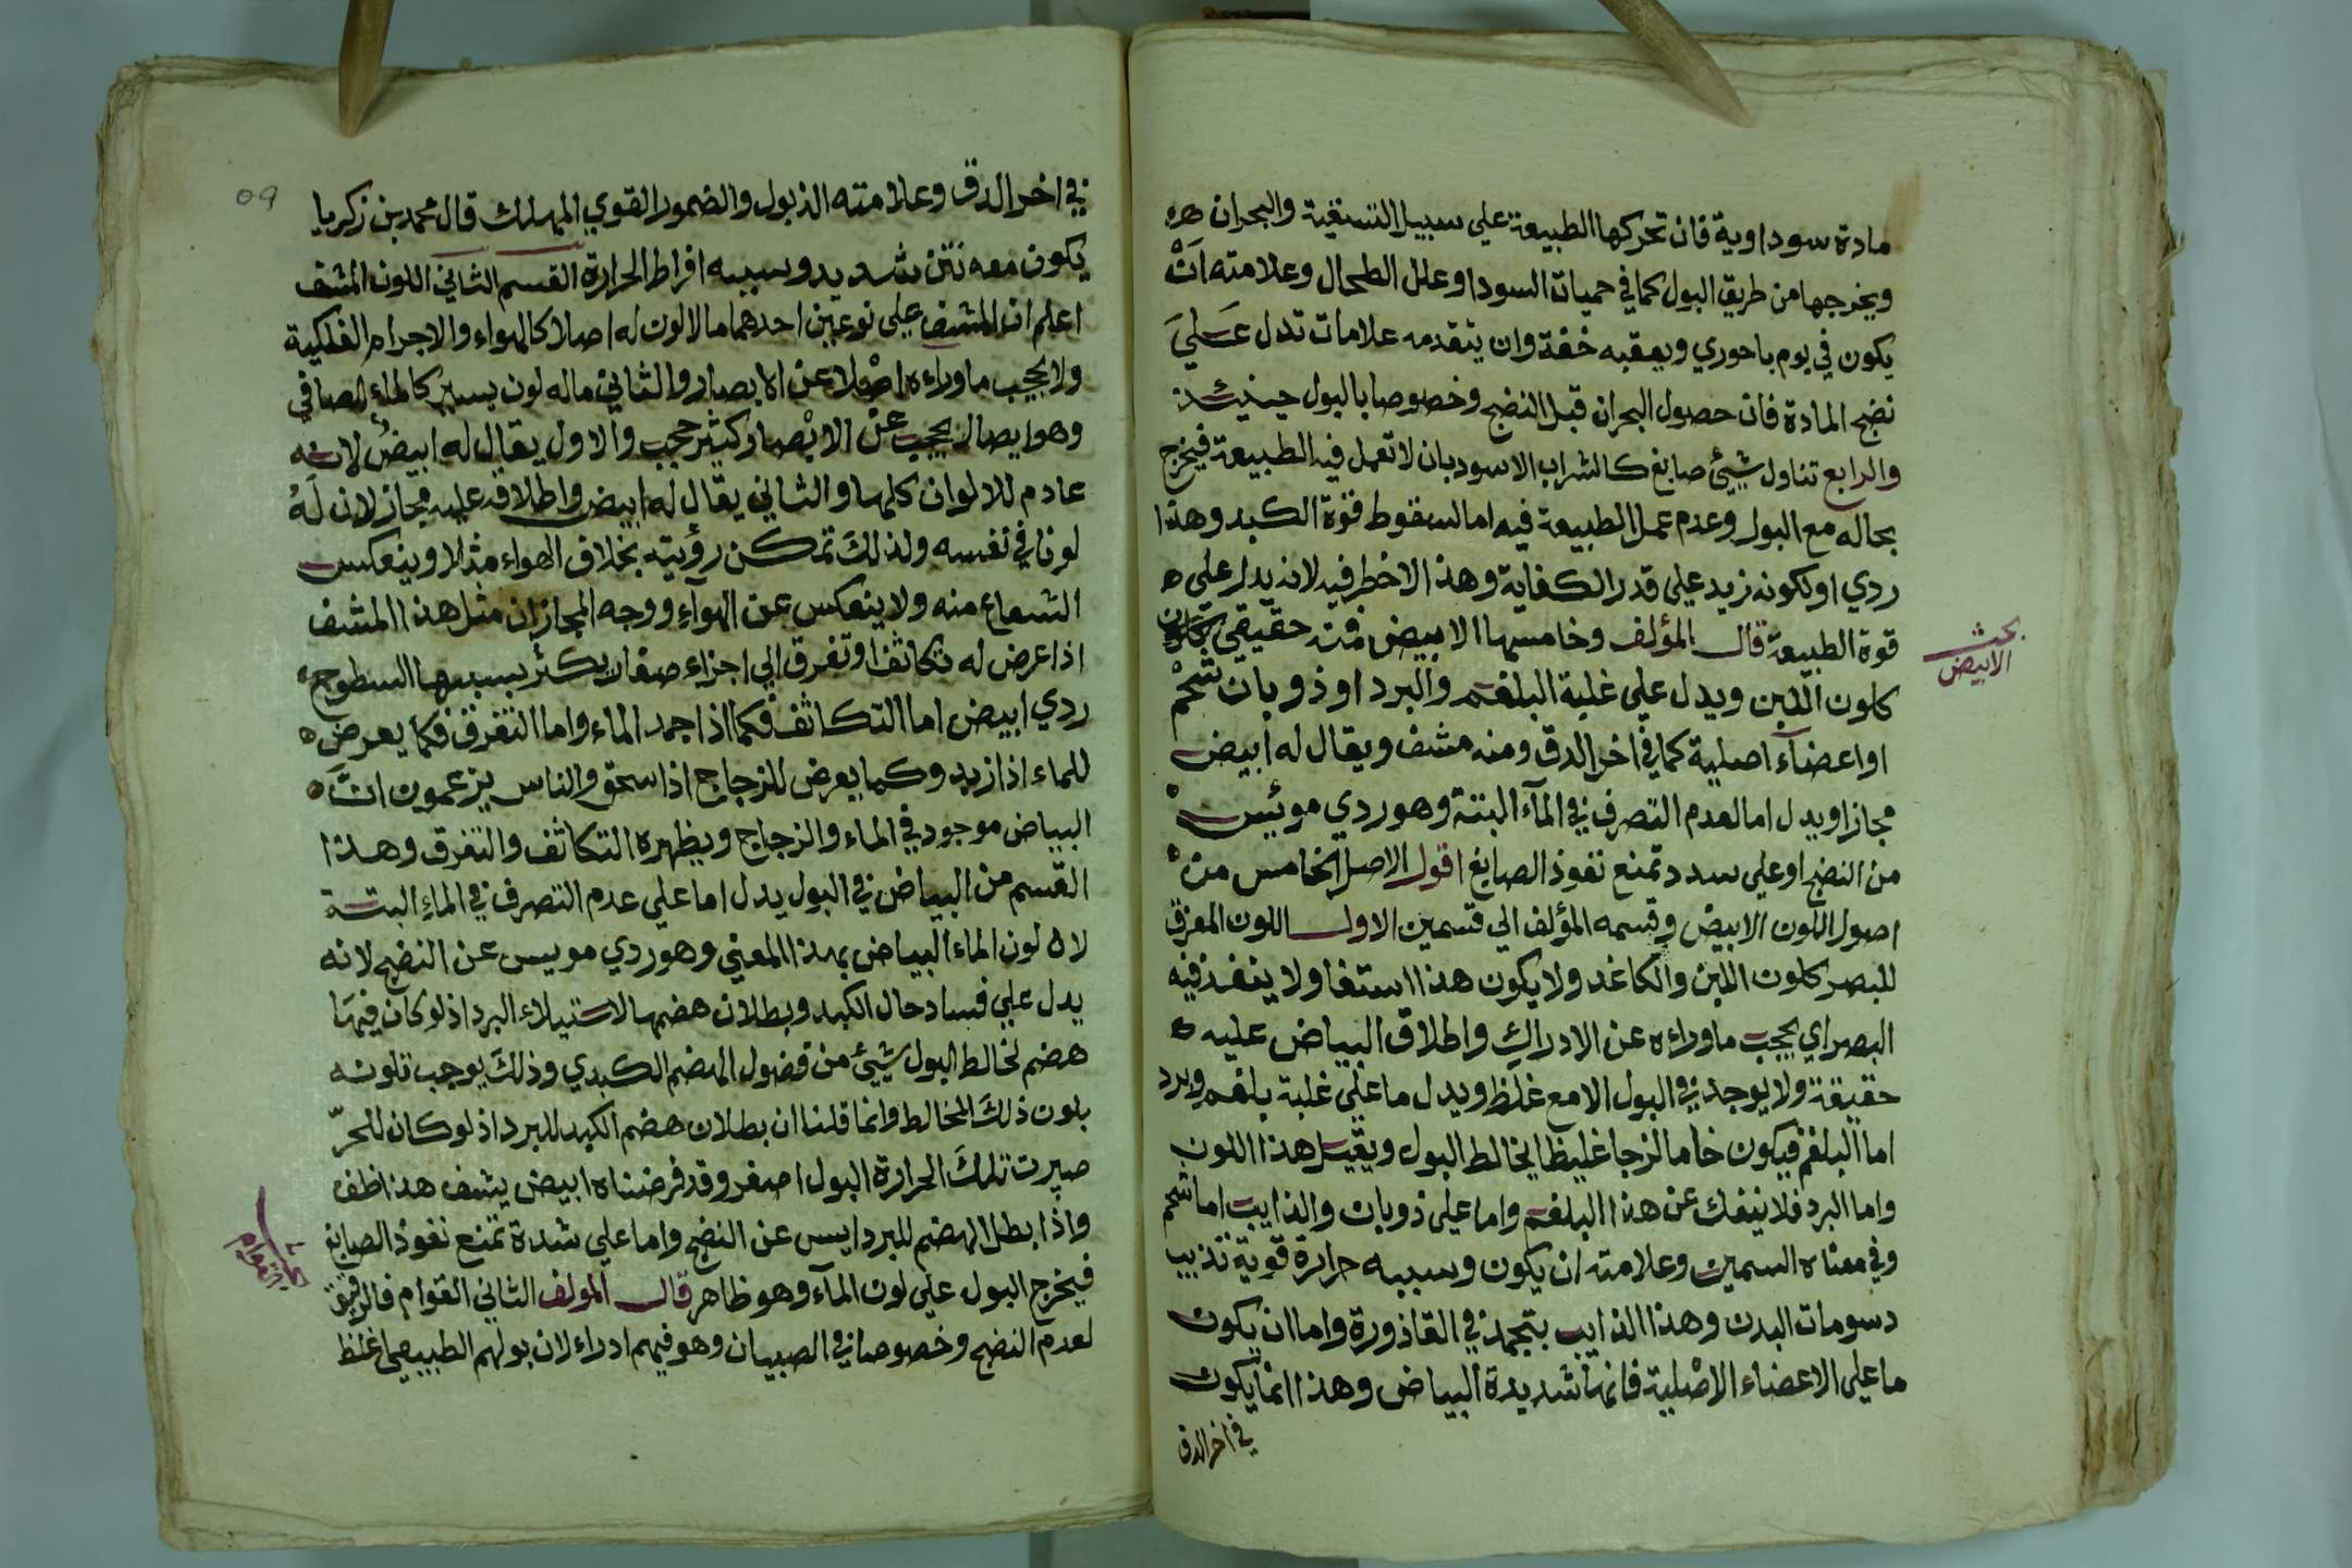 مادة سوداوية فان تحركها الطبيعة علي سبيل التنقية والبحران
ويخرجها من طريق البول كما في حميات السودا وعلل الطحال وعلامته ان
يكون في يوم باحوري ويعقبه خفة وان يتقدمه علامات تدل علي
نضج المادة فان حصول البحران قبل النضج وخصوصا بالبول حينئذ
والرابع تناول شيئ صابغ كالشراب الاسود بان لا تعمل فيه الطبيعة فيخرج
بحاله مع البول وعدم عمل الطبيعة فيه اما لسقوط قوة الكبد وهذا
ردي او لكونه زيد علي قدر الكفاية وهذا لاخطر فيه لانه يدل علي
قوة الطبيعة قال المؤلف وخامسها الابيض فمنه حقيقي
بحث
الابيض
كلون اللبن ويدل علي غلبة البلغم والبرد او ذوبان شحم
او اعضاء اصلية كما في اخر الدق ومنه مشف ويقال له ابيض
مجازا ويدل اما لعدم التصرف في المآء البتة وهو ردي موئيس
من النضج او علي سدد تمنع نفوذ الصابغ اقول الاصل الخامس من
اصول اللون الابيض وقسمه المؤلف الي قسمين الاول اللون المفرق
للبصر كلون اللبن والكاغد ولا يكون هذا مستشفا ولا ينفذ فيه
البصر اي يحجب ماوراءه عن الادراك واطلاق البياض عليه
حقيقة ولا يوجد في البول الا مع غلظ ويدل ما علي غلبة بلغم وبرد
اما البلغم فيكون خاما لزجا غليظا يخالط البول هذا اللون
واما البرد فلا ينفك عن هذا البلغم واما علي ذوبان والذايب اما شحم
وفي معناه السمين وعلامته ان يكون وسببه حرارة قوية تذيب
دسومات البدن وهذا الذايب يتجمد في القاذورة واما ان يكون
ما علي الاعضاء الاصلية فانها شديدة البياض وهذا انما يكون
في اخر الدق
٥٩
في اخر الدق وعلامته الذبول والضمور القوي المهلك قال محمد بن زكريا
يكون معه نتن شديد وسببه افراط الحرارة القسم الثاني اللون المشف
اعلم ان المشف علي نوعين احدهما ما لا لون له اصلا كالهواء والاجرام الفلكية
ولا يحجب ماوراءه اصلا عن الابصار والثاني ماله لون يسير كالماء الصافي
وهو ايضا لا يحجب عن الابصار كثير حجب والاول يقال له ابيض لانه
عادم للالوان كلها والثاني يقال له ابيض واطلاقه عليه مجاز لان له
لونا في نفسه ولذلك تمكن رؤيته بخلاف الهواء مثلا وينعكس
الشعاع منه ولا ينعكس عن الهوآء ووجه المجاز ان مثل هذا المشف
اذا عرض له تكاثفا وتفرق الي اجزاء صغار يكثر بسببها السطوح
ردي ابيض اما التكاثف فكما اذا جمد الماء واما التفرق فكما يعرض
للماء اذا ازبد وكما يعرض للزجاج اذا سحق والناس يزعمون ان
البياض موجود في الماء والزجاج ويظهره التكاثف والتفرق وهذا
القسم من البياض في البول يدل اما علي عدم التصرف في الماء البتة
لان لون الماء البياض بهذا المعني وهو ردي مويس عن النضج لانه
يدل علي فساد حال الكبد وبطلان هضمها لاستيلاء البرد اذ لو كان فيها
هضم لخالط البول شيئ من فضول الهضم الكبدي وذلك يوجب تلونه
بلون ذلك المخالط وانما قلنا ان بطلان هضم الكبد للبرد اذ لو كان للحر
صيرت تلك الحرارة البول اصفر وقد فرضناه ابيض يشف هذا خلف
واذا بطل الهضم للبرد ايس عن النضج واما علي شدة تمنع نفوذ الصابغ
فيخرج البول علي لون المآء وهو ظاهر قال المولف الثاني القوام فالرقيق
لعدم النضج وخصوصا في الصبيان وهو فيهم ادراء لان بولهم الطبيعي اغلظ